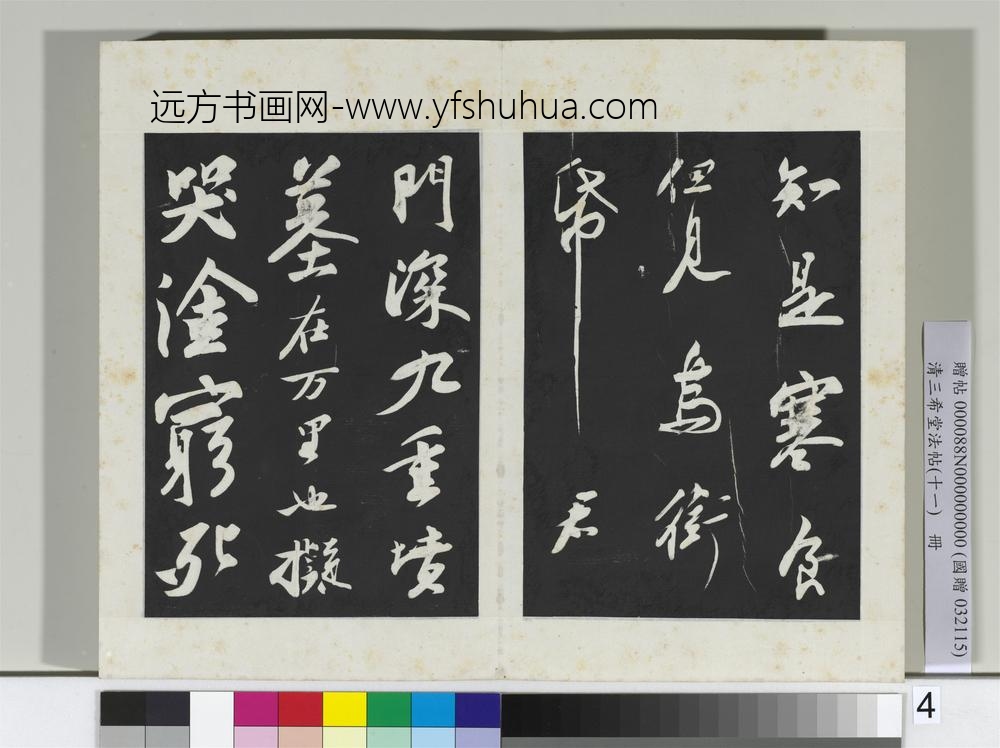 远方书画网-www.yfshuhua.com
知是寒食
但見烏銜
帋君
門深九重墳
墓在万里也擬
哭塗窮死
贈帖 000088N000000000 (國贈 032115)
清三希堂法帖(十一) 冊
4